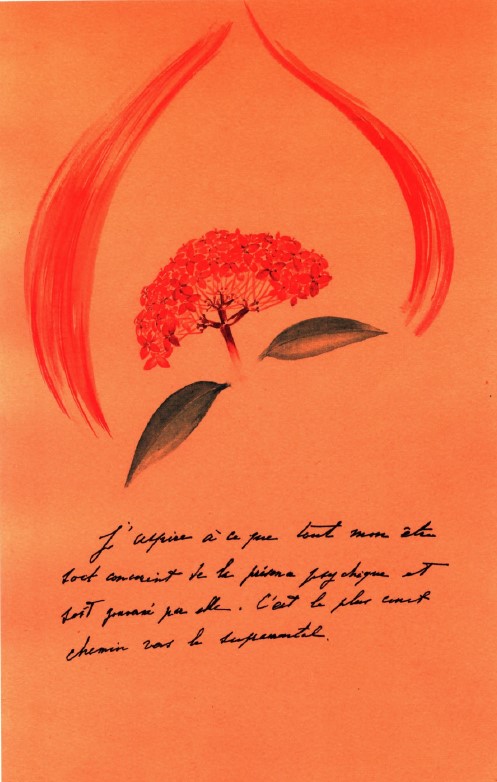 J'aspire à ce que tout mon être
soit conscient de la présence psychique et
soit gouverné par elle. C'est le plus court
chemin vers le supramental.